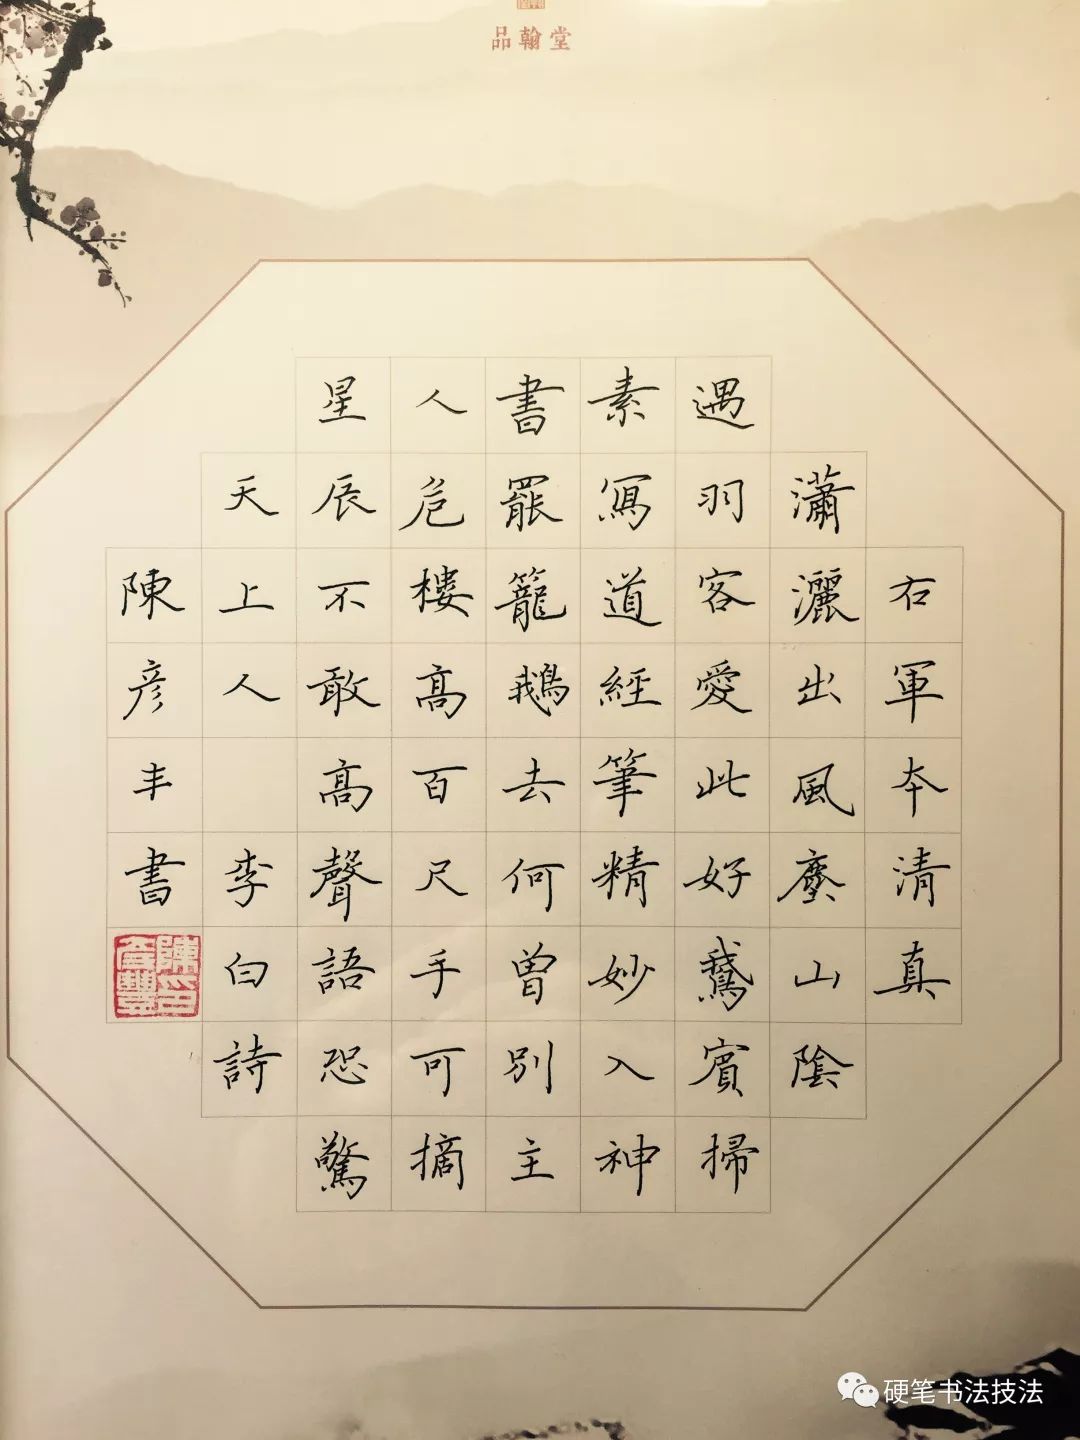 品翰堂
右軍本清真
瀟灑出風塵山陰
遇羽客愛此好鵝賓掃
素寫道經筆精妙入神
書罷籠鵝去何曾別主
人危樓高百尺手可摘
星辰不敢高聲語恐驚
天上人 李白詩
陳彥丰書
硬笔书法技法